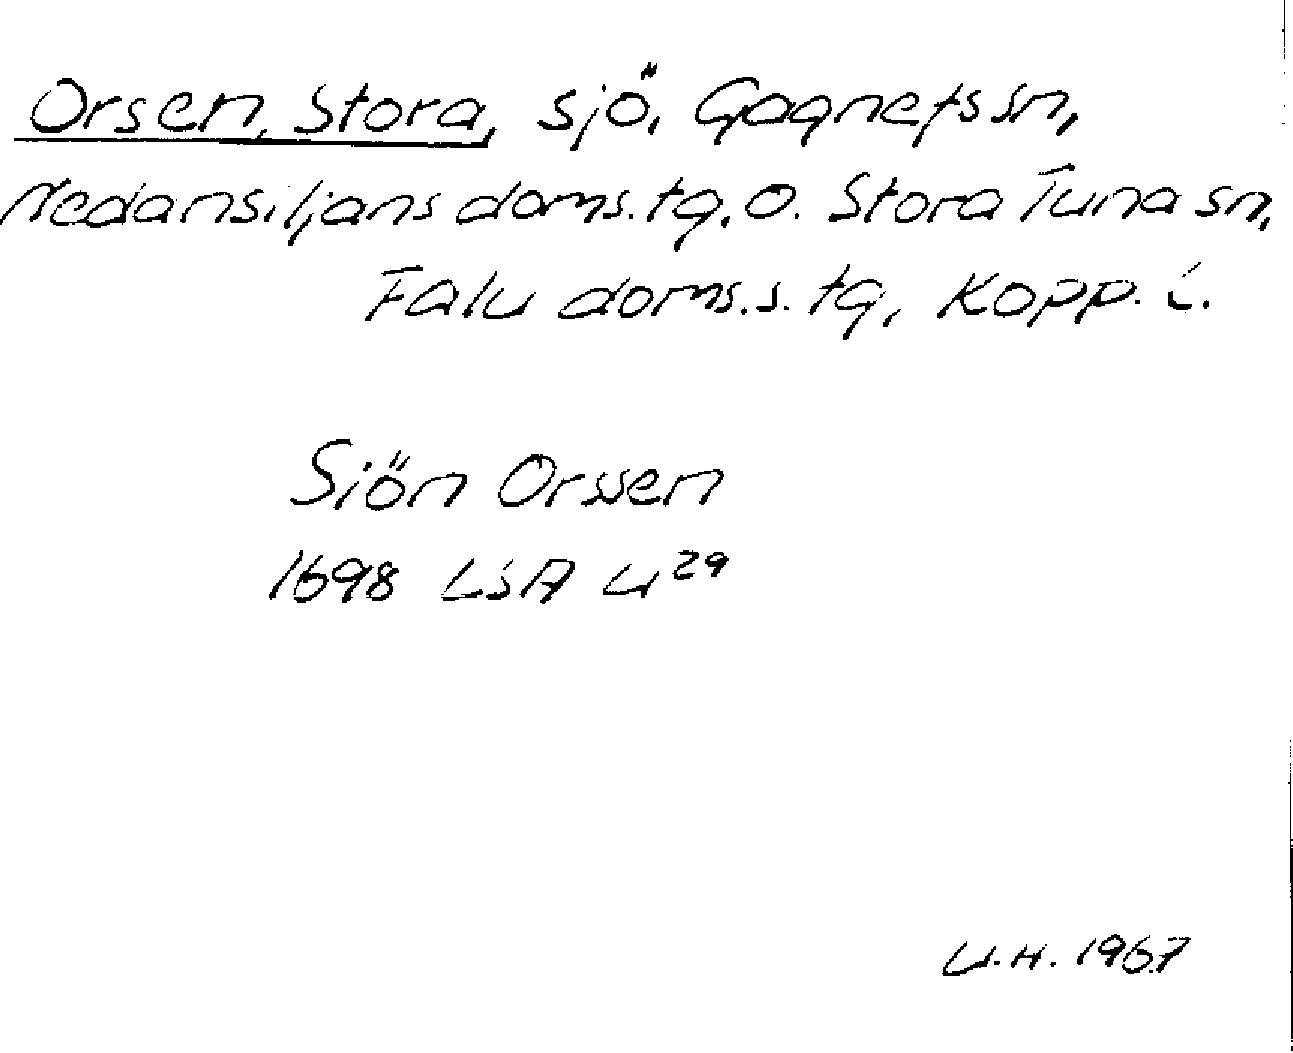 Orsen, Stora, sjö, Gagnefs sn,
Nedansiljans doms. tg, o. Stora Tuna sn,
Falu doms.s. tg, Kopp. l.
Siön Orssen
1698 LSA U 29
U.H. 1967